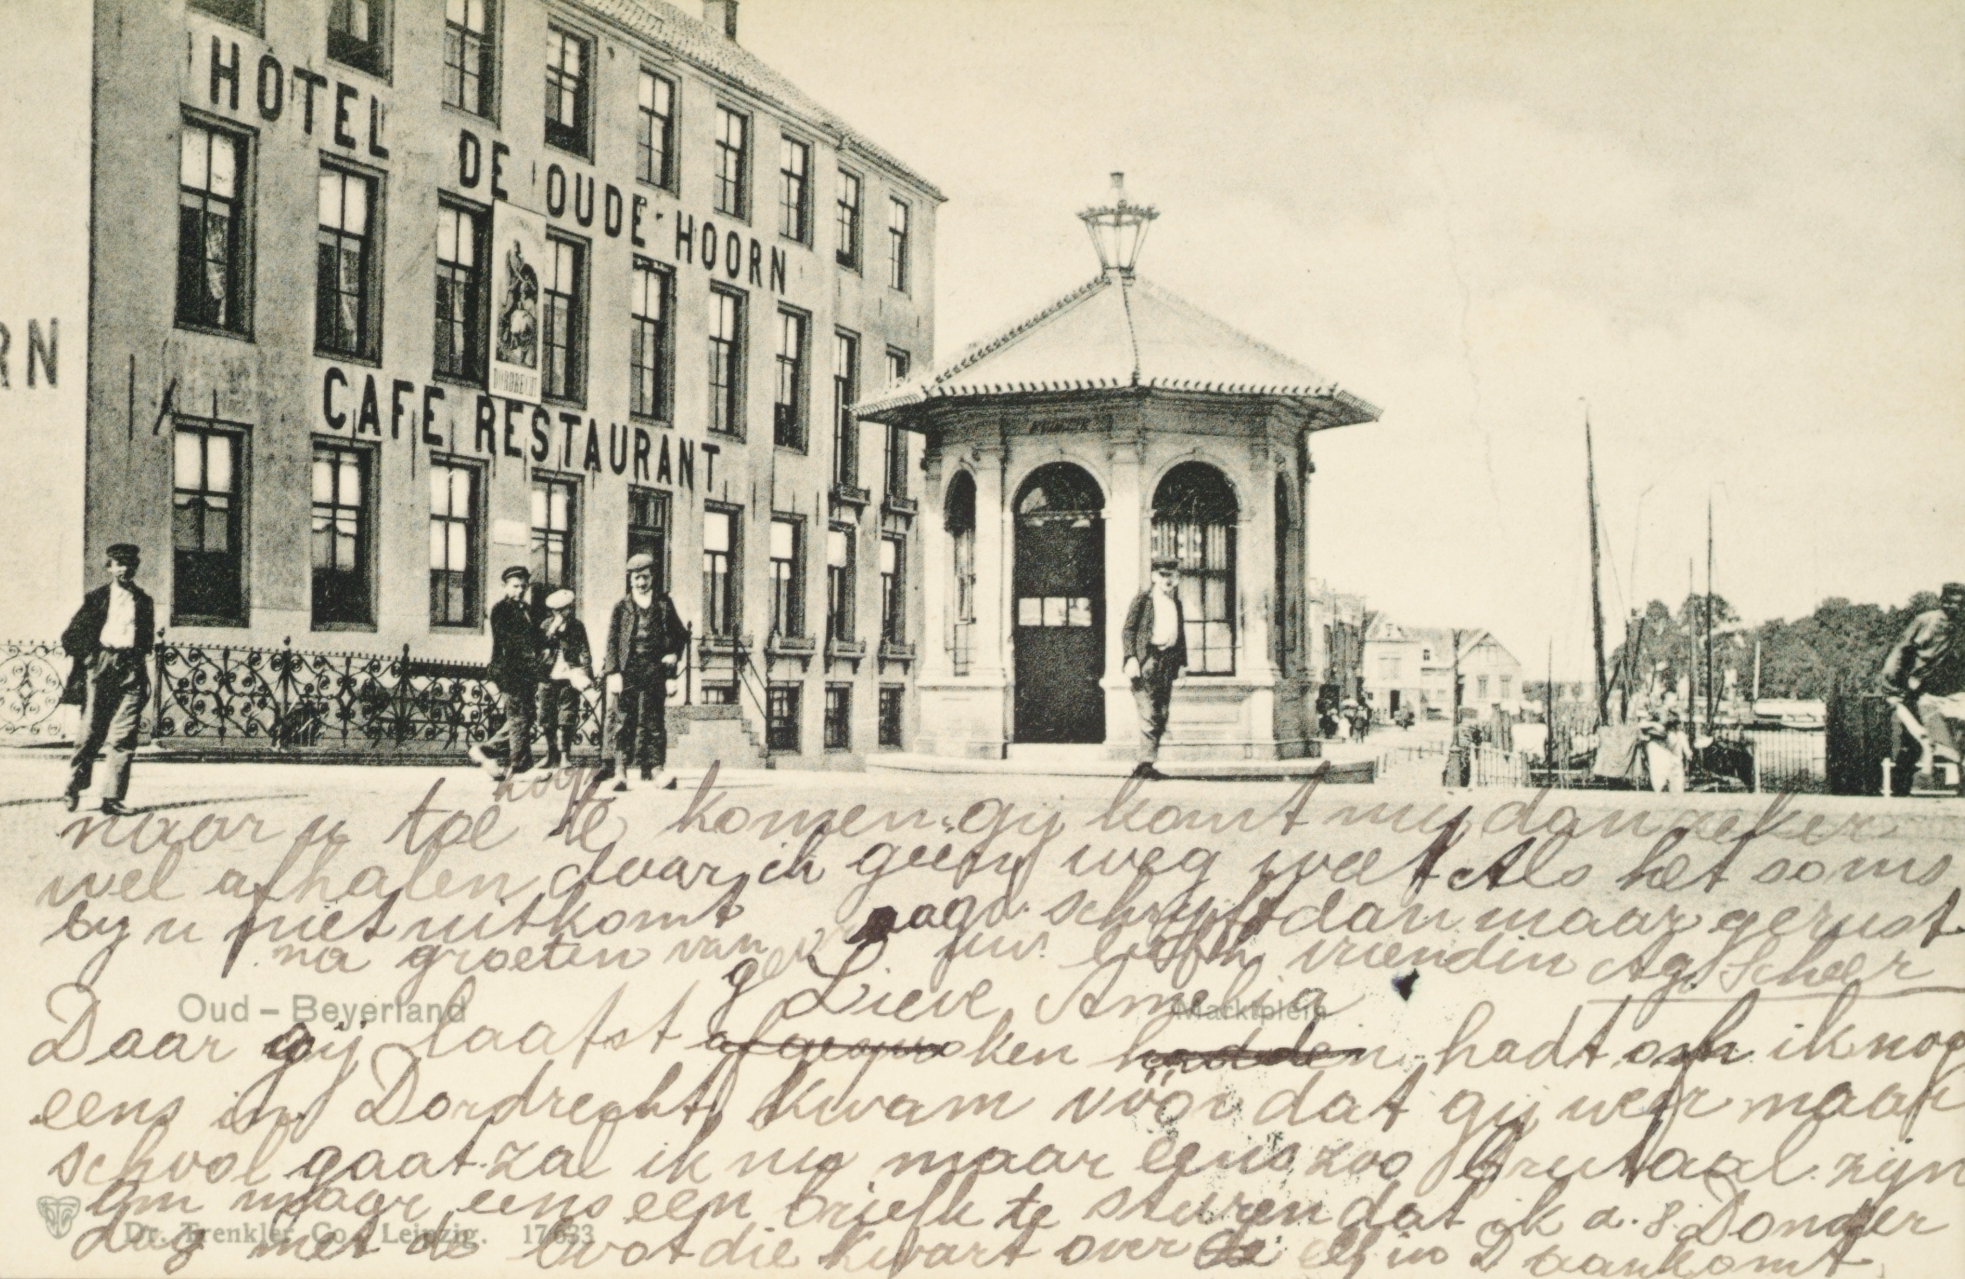 HOTEL
DE OUDE HOORN
CAFE RESTAURANT
DORDRECHT
RN
hoop
naar u toe te komen. gij komt mij dan zeker
wel afhalen daar ik geen weg weet Als het soms
bij u niet uitkomt schrijft dan maar gerust
na groeten van uw vriendin Ag. Scheer
Lieve Amelia
Oud – Beyerland
Marktplein
Daar gij laatst afgesproken hadden hadt als ik nog
eens in Dordrecht kwam vóór dat gij weer naar
school gaat zal ik nu maar eens zoo brutaal zijn
om maar eens een briefk te sturen dat ik a.s. Donder
dag met de boot die kwart over elf in D aankomt
Dr. Trenkler Co., Leipzig. 17633